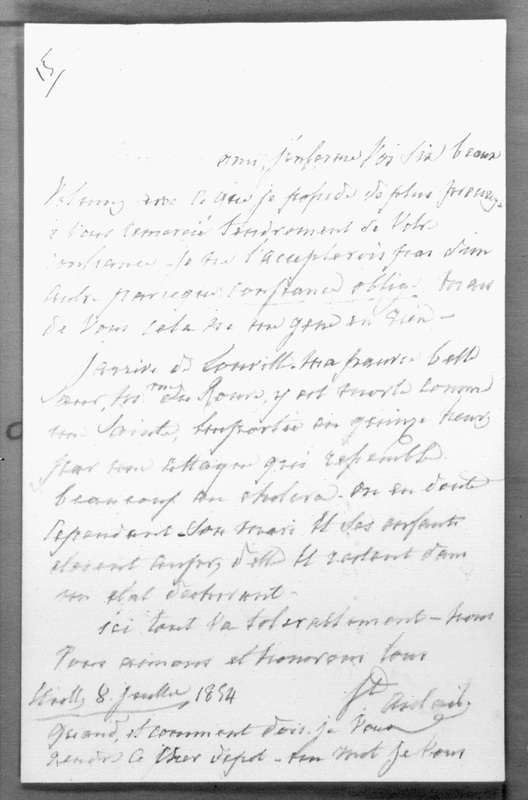 ami, j'enferme vos six beaux
volumes avec ce que je possède de plus precieux,
vous remercie tendrement de votre
confiance. je ne l'accepterois pas d'un
autre parceque confiance oblige mais
de vous cela ne me gene en rien -
J'arrive de ma pauvre belle
Soeur, Me du Roure, y est morte comme
une Sainte, emportée en quinze heures
par une attaque qui ressemble
beaucoup au cholera - on en doute
cependant - Son mari et Ses enfants
etoient auprès d'elle et restent dans
un etat dechirant -
ici tout va tolerablement - nous
vous aimons et honorons tous
8 Juillet 1854
quand, et comment dois-je vous
rendre ce cher depot - un mot je vous